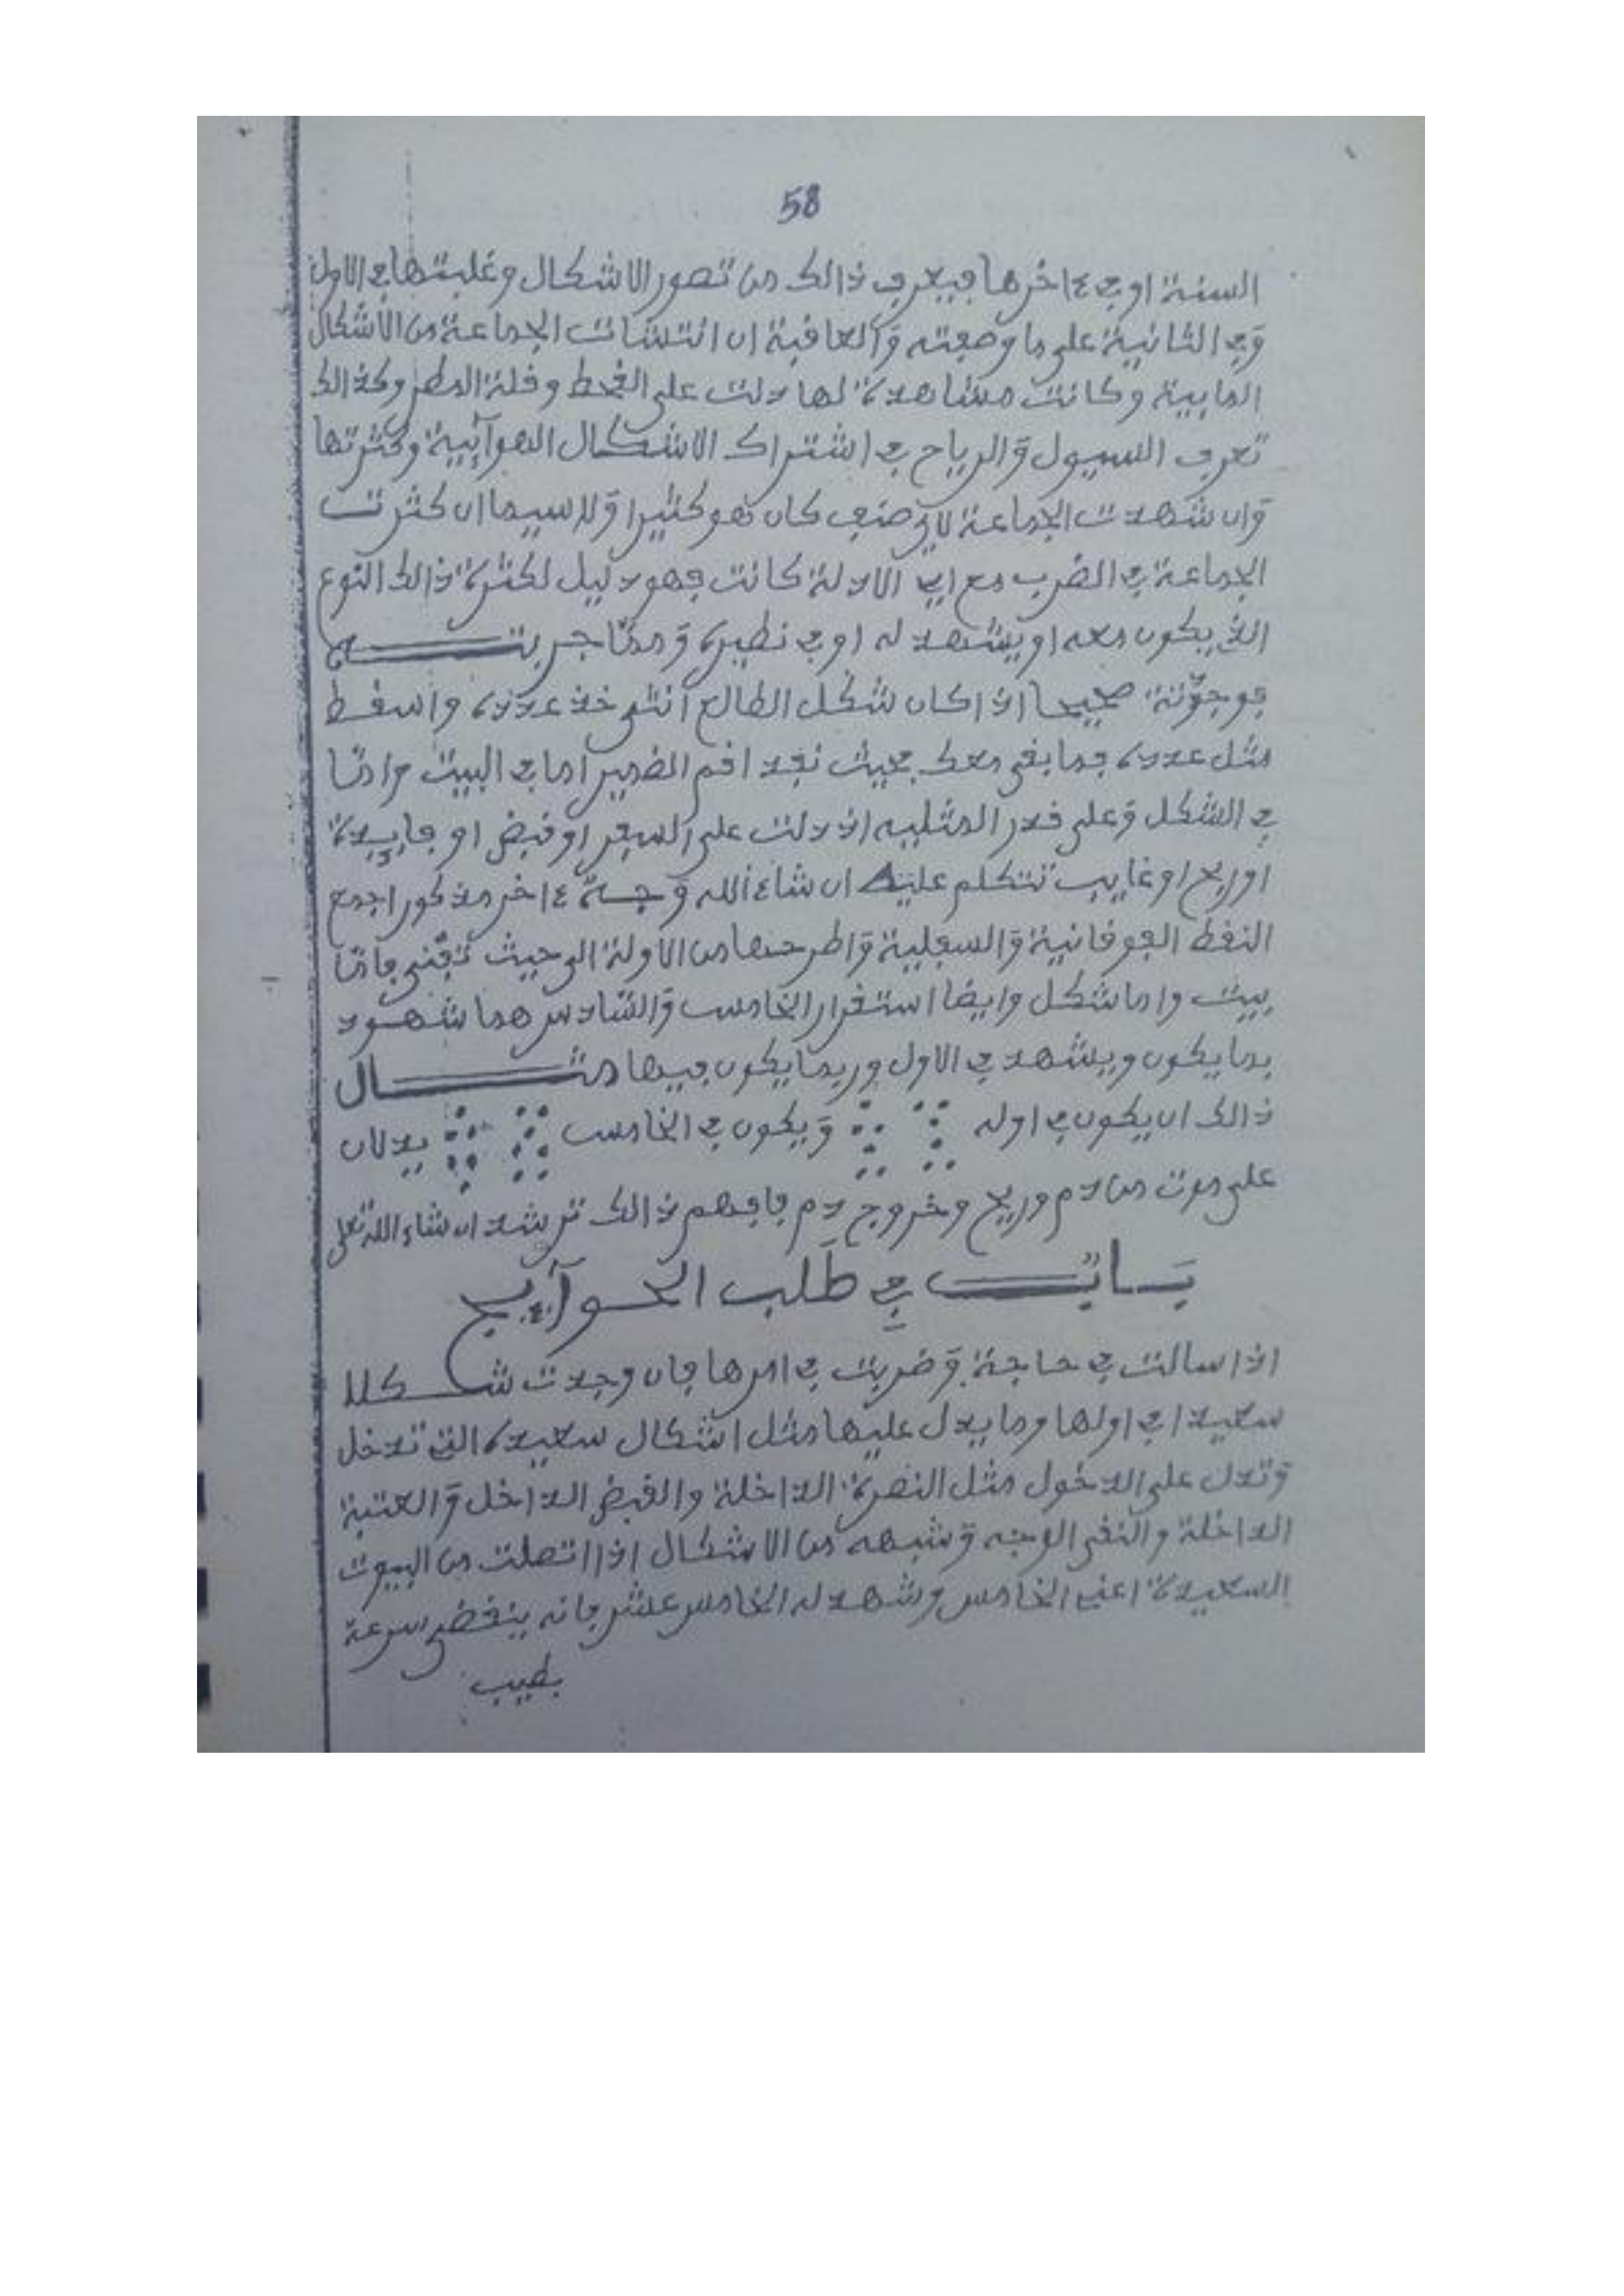 58
السنة او في ءاخرها فيعرف ذالك من تصور الاشكال وغلبتها في الاول
وفي الثانية على ما وصفته والعافية ان انتشات الجماعة من الاشكال
المايية وكانت مشاهدة لها دلت على القحط وقلة المطر وكذالك
تعرف السيول والرياح في اشتراك الاشكال الهوآئية وكثرتها
وان شهدت الجماعة لاي صنف كان فهو كثيرا ولا سيما ان كثرت
الجماعة في الضرب مع اي الادلة كانت فهو دليل لكثرة ذالك النوع
الذي يكون معه او يشهد له او في نظيره ومما جربته
فوجدته صحيحا اذا كان شكل الطالع انثى خذ عدده واسقط
مثل عدده فما بقي معك بحيث نفد اقم الضمير اما في البيت وامّا
في الشكل وعلى قدر المثليه اذ دلت على السفر او قبض او فايدة
او ربح او غايب تتكلم عليه ان شاء الله وجه ءاخر مذكور اجمع
النقط الفوقانية والسفلية واطرحها من الاولة الى حيث تفنى فامّا
بيت واما شكل وايضا استقرار الخامس والسّادس هما شهود
بما يكون ويشهد في الاول وربما يكون فيها مثال
ذالك ان يكون في اوله ويكون في الخامس يدلان
على موت من دم وريح وخروج دم فافهم ذالك ترشد ان شاء الله تعلى
باب في طلب الحوآيج
اذا سالت في حاجة وضربت في امرها فان وجدت شكلا
سعيدا في اولها وما يدل عليها مثل اشكال سعيدة التي تدخل
وتدل على الدخول مثل النصرة الداخلة والقبض الداخل والعتبة
الداخلة والنقي الوجه وشبهه من الاشكال اذا اتصلت من البيوت
السعيدة اعني الخامس وشهد له الخامس عشر فانه ينقضي سرعة
بطيب